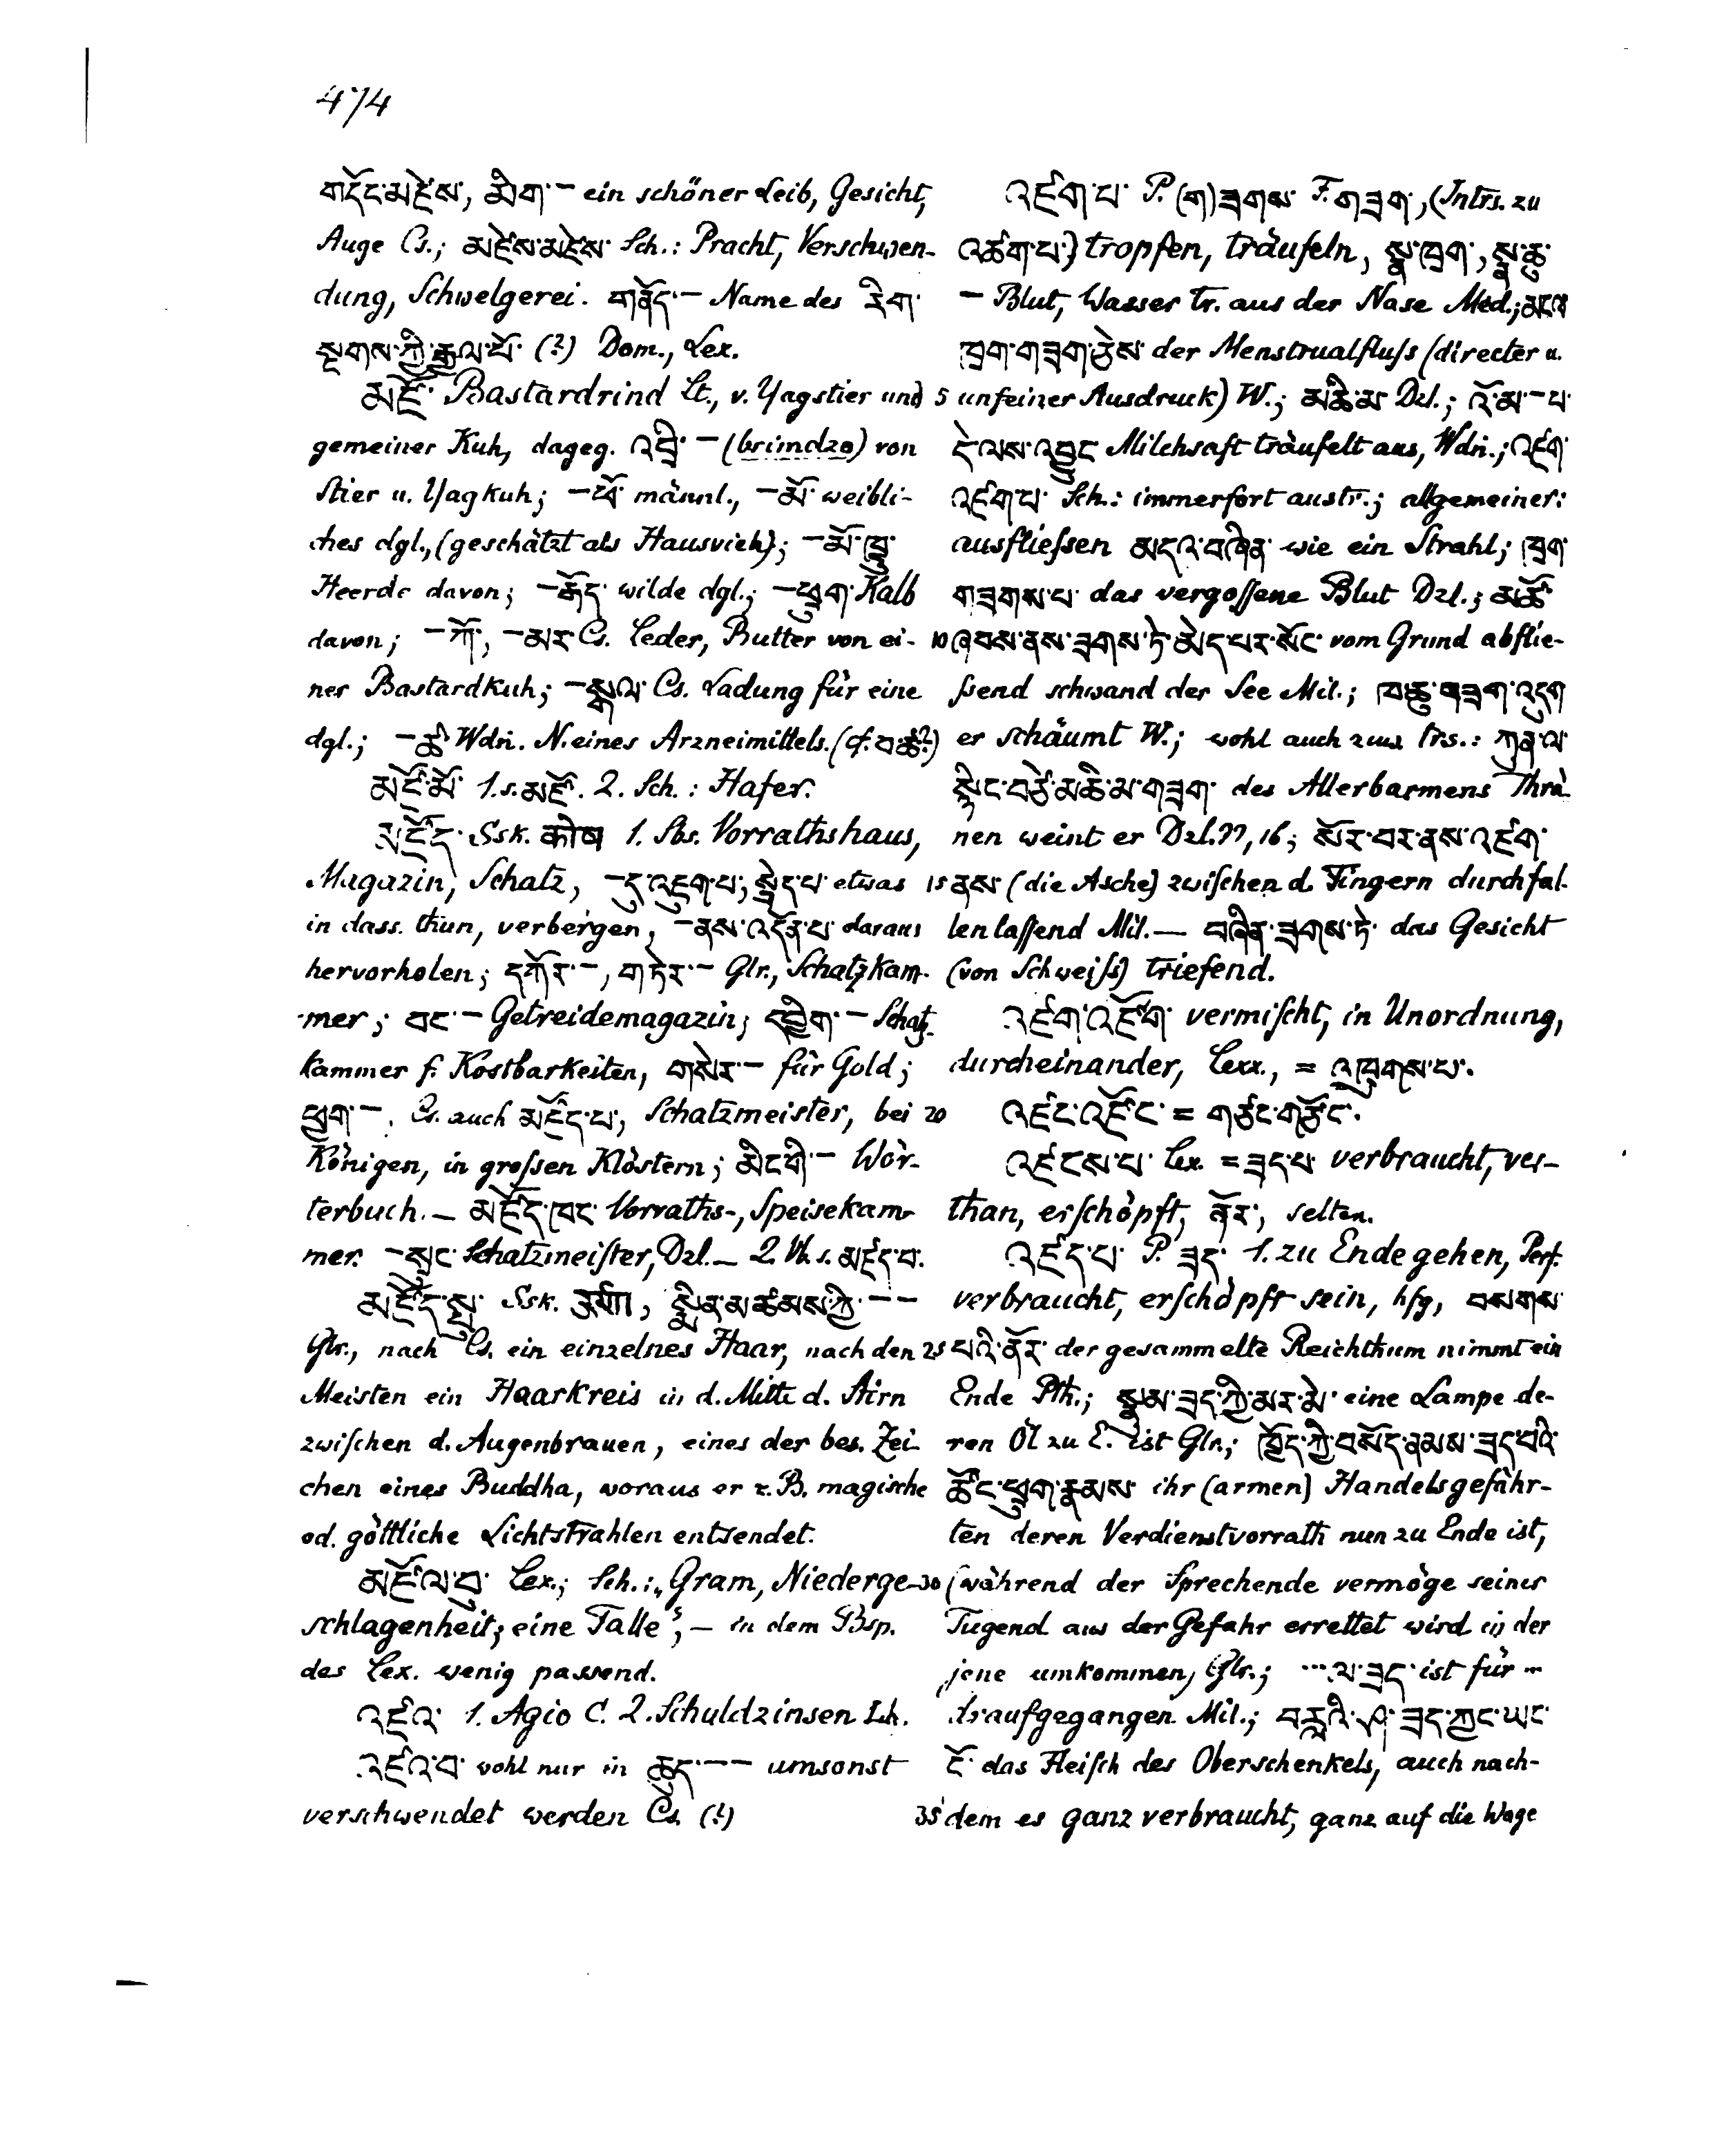 474
གདོང་མཛེས་, མིག་ – ein schöner Leib, Gesicht,
Auge Cs.; མཛེས་མཛེས་ Sch.: Pracht, Verschwen-
dung, Schwelgerei. གནོད་ – Name des རིག་
སྔགས་ཀྱི་རྒྱལ་པོ་ (?) Dom., Lex.
མཛོ་ Bastardrind Lt., v. Yagstier und
gemeiner Kuh, dageg. འབྲི་ – (brimdzo) von
Stier u. Yagkuh; –ཕོ་ männl., –མོ་ weibli-
ches dgl., (geschätzt als Hausvieh); –མོ་ཁྱུ་
Heerde davon; –རྒོད་ wilde dgl.; –ཕྲུག་ Kalb
davon; –ཀོ་, –མར་ Cs. Leder, Butter von ei-
ner Bastardkuh; –སྒལ་ Cs. Ladung für eine
dgl.; –ཚྭ Wdn. N. eines Arzneimittels. (cf. བ་ཚྭ?)
མཛོ་མོ་ 1. s. མཛོ་. 2. Sch.: Hafer.
མཛོད་ Ssk. कोष 1. Sbs. Vorrathshaus,
Magazin, Schatz, –དུ་འཇུག་པ་, སྦེད་པ་ etwas
in dass. thun, verbergen, –ནས་འདོན་པ་ daraus
hervorholen; དཀོར་–, གཏེར་– Glr., Schatzkam-
mer; བང་– Getreidemagazin; དབྱིག་– Schatz-
kammer f. Kostbarkeiten, གསེར་– für Gold;
ཕྱག་–, Cs. auch མཛོད་པ་, Schatzmeister, bei
Königen, in grossen Klöstern; མིང་གི་– Wör-
terbuch. – མཛོད་ཁང་ Vorraths-, Speisekam-
mer. –སྲུང་ Schatzmeister, Dzl. – 2. Vb. s. མཛད་པ་.
མཛོད་སྤུ་ Ssk. ऊर्णा, སྨིན་མཚམས་ཀྱི་ – –
Glr., nach Cs. ein einzelnes Haar, nach den
Meisten ein Haarkreis in d. Mitte d. Stirn
zwischen d. Augenbrauen, eines der bes. Zei-
chen eines Buddha, woraus er z. B. magische
od. göttliche Lichtstrahlen entsendet.
མཛོལ་བུ་ Lex.; Sch.: „Gram, Niederge-
schlagenheit; eine Falle", – in dem Bsp.
des Lex. wenig passend.
འཛའ་ 1. Agio C. 2. Schuldzinsen Lh.
འཛའ་བ་ wohl nur in ཆུད་ – – umsonst
verschwendet werden Cs. (?)
འཛག་པ་ P. (ག)ཟགས་ F. གཟག་, (Intrs. zu
འཚག་པ་) tropfen, träufeln, སྣ་ཁྲག་, སྣ་ཆུ་
– Blut, Wasser tr. aus der Nase Med.; མངལ་
ཁྲག་གཟག་ཅེས་ der Menstrualfluss (directer u.
5 unfeiner Ausdruck) W.; མཆི་མ་ Dzl.; འོ་མ་–པ་
དེ་ལས་འབྱུང་ Milchsaft träufelt aus, Wdn.; འཛག་
འཛག་པ་ Sch.: immerfort austr.; allgemeiner:
ausfliessen མདའ་བཞིན་ wie ein Strahl; ཁྲག་
གཟགས་པ་ das vergossene Blut Dzl.; མཚོ་
10 ཞབས་ནས་ཟགས་ཏེ་མེད་པར་སོང་ vom Grund abflie-
ssend schwand der See Mil.; ཁ་ཆུ་གཟག་འདུག
er schäumt W.; wohl auch zuw. trs.: ཀུན་ལ་
སྙིང་བརྩེ་མཆི་མ་གཟག་ des Allerbarmens Thrä-
nen weint er Dzl. ??, 16; སོར་བར་ནས་འཛག་
15 ནས་ (die Asche) zwischen d. Fingern durchfal-
len lassend Mil. – བཞིན་ཟགས་ཏེ་ das Gesicht
(von Schweiss) triefend.
འཛག་འཛོག་ vermischt, in Unordnung,
durcheinander, Lexx., = འཁྲུགས་པ་.
20 འཛང་འཛོང་ = གཙང་གཙོང་.
འཛངས་པ་ Lex. = ཟད་པ་ verbraucht, ver-
than, erschöpft, ནོར་, selten.
འཛད་པ་ P. ཟད་ 1. zu Ende gehen, Perf.
verbraucht, erschöpft sein, hfg, བསགས་
25 པའི་ནོར་ der gesammelte Reichthum nimmt ein
Ende Pth.; སྣུམ་ཟད་ཀྱི་མར་མེ་ eine Lampe de-
ren Öl zu E. ist Glr.; ཁྱོད་ཀྱི་བསོད་ནམས་ཟད་པའི་
ཚོང་ཕྲུག་རྣམས་ ihr (armen) Handelsgefähr-
ten deren Verdienstvorrath nun zu Ende ist,
30 (während der Sprechende vermöge seiner
Tugend aus der Gefahr errettet wird in der
jene umkommen, Glr.; ...ལ་ཟད་ ist für ...
draufgegangen Mil.; བརླའི་ཤ་ཟད་ཀྱང་ཡང་
ངོ་ das Fleisch des Oberschenkels, auch nach-
35 dem es ganz verbraucht, ganz auf die Wage